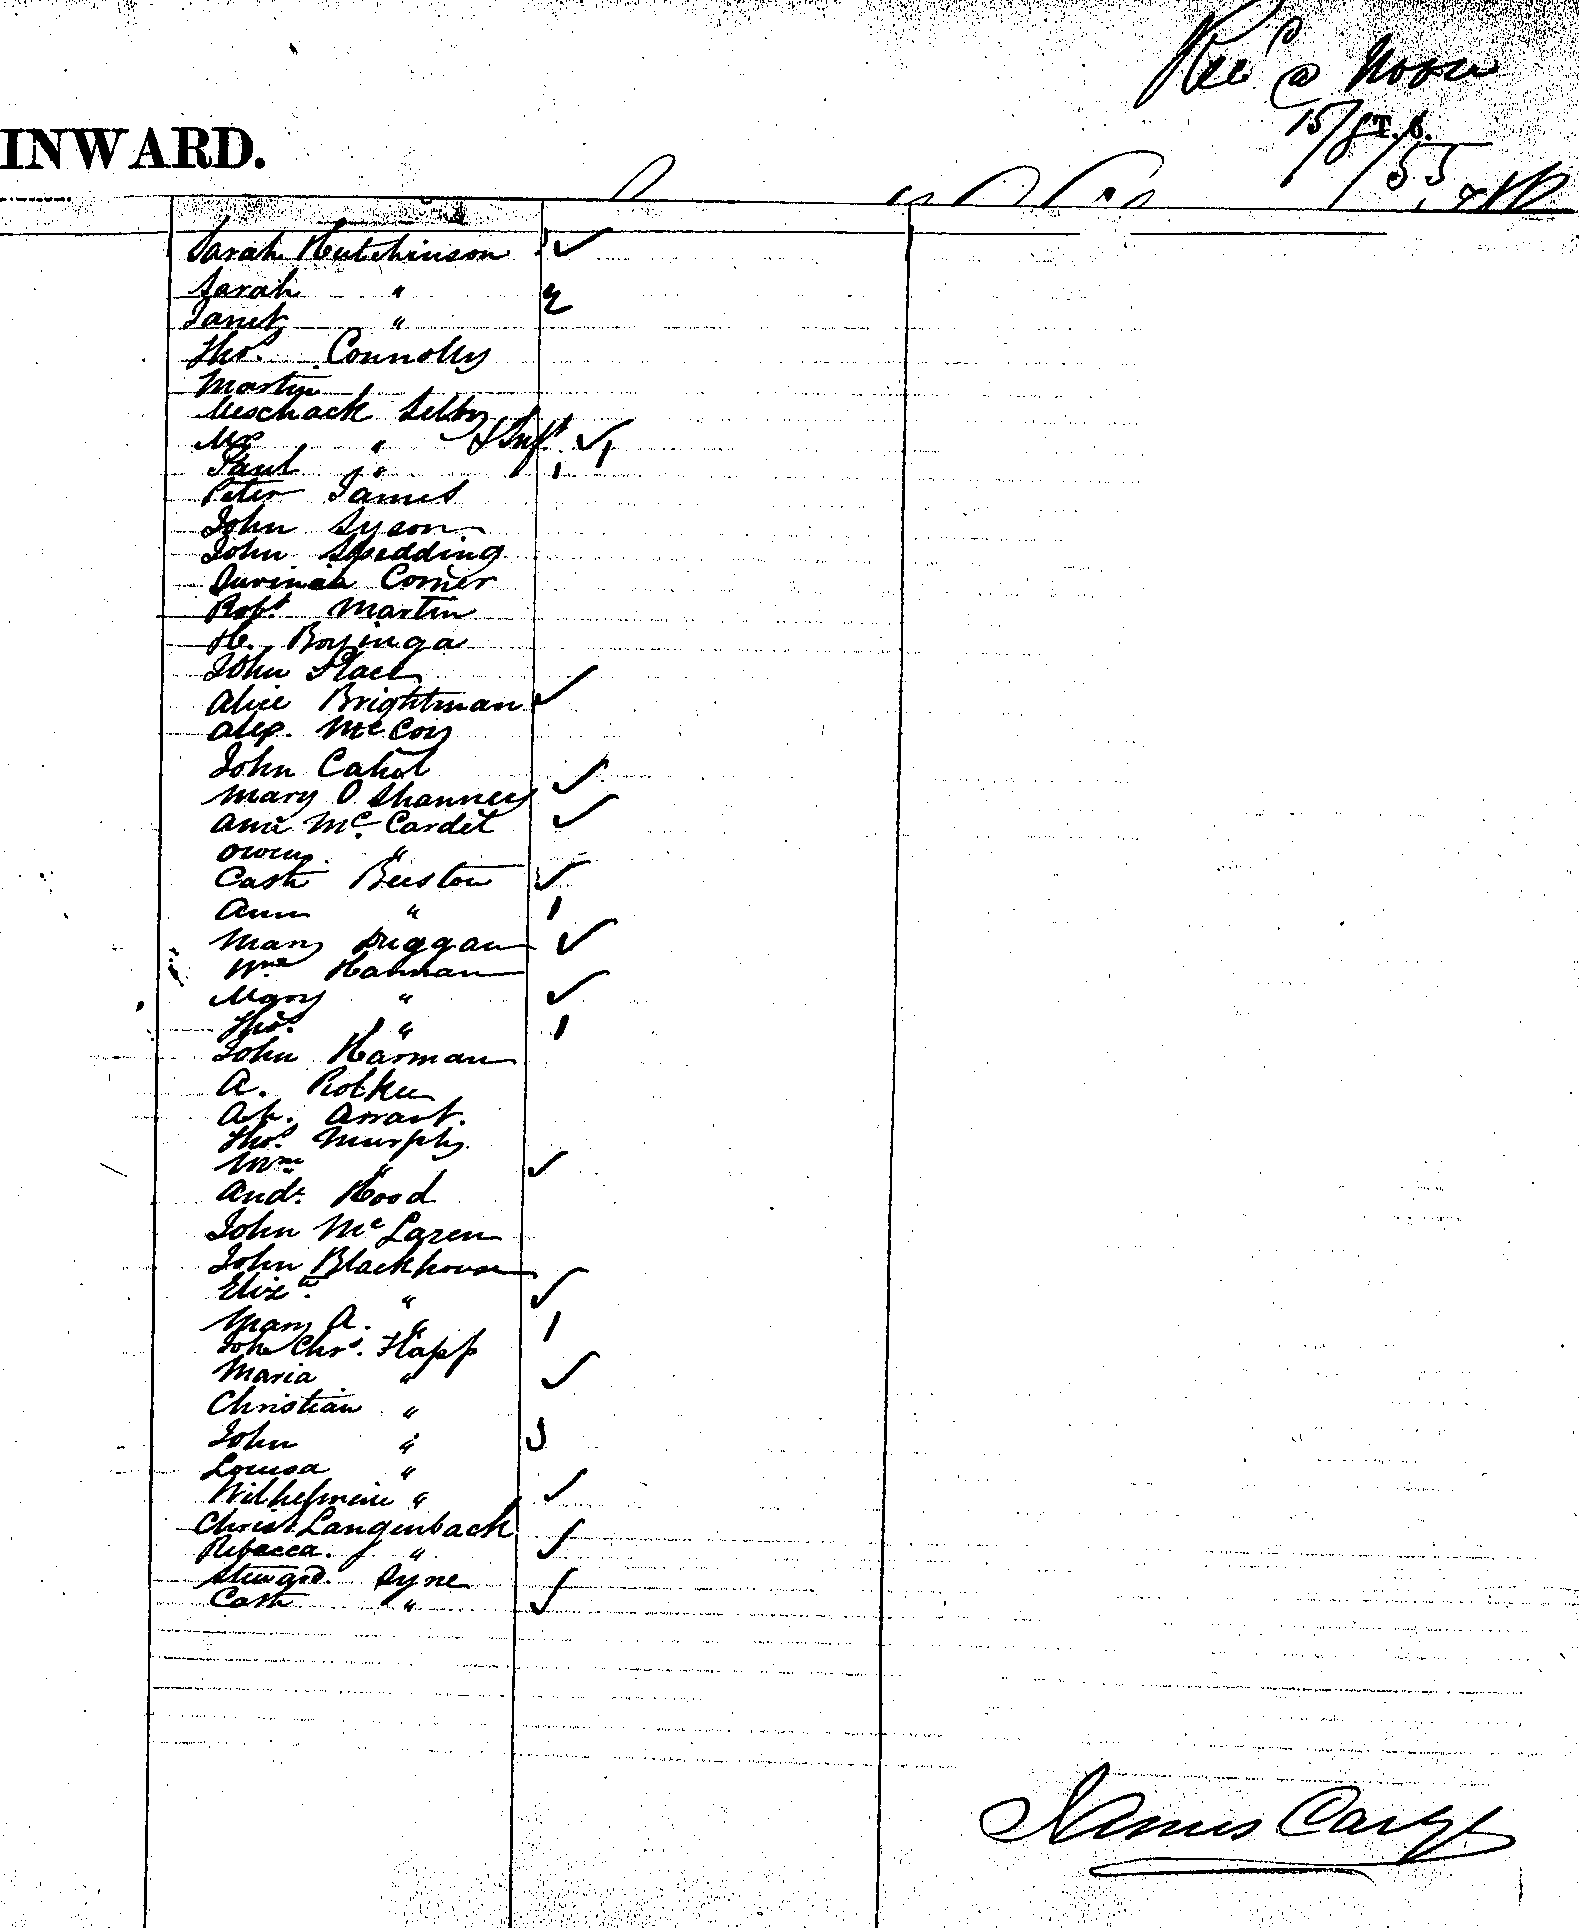 Rec^d @ Noon
15/8/55
INWARD.
Sarah Hutchinson
Sarah "
Janet "
Thos. Connolly
Martin
Meschack Selby
Mrs " & Inft. 1
Paul " 1
Peter James
John Syson
John Spedding
Corner
Robt. Martin
H.
John
Alice Brightman
Alex. McCoy
John Cahol
Mary O Shannery
Ann Mc Cardel
Owen "
Cath Beeston
Ann " 1
Mary Duggan
Wm. Hannan
Mary "
Thos. " 1
John Harman
A.
Thos. Murphy
"
Andr. Hood
John Mc Laren
John Blackhouse
Elizth. "
Mary A. " 1
John Chrs. Happ
Maria "
Christian "
John " 3
Louisa "
Wilhelmine "
Christ Langenback
Rebacca. "
Syne
Cath "
James